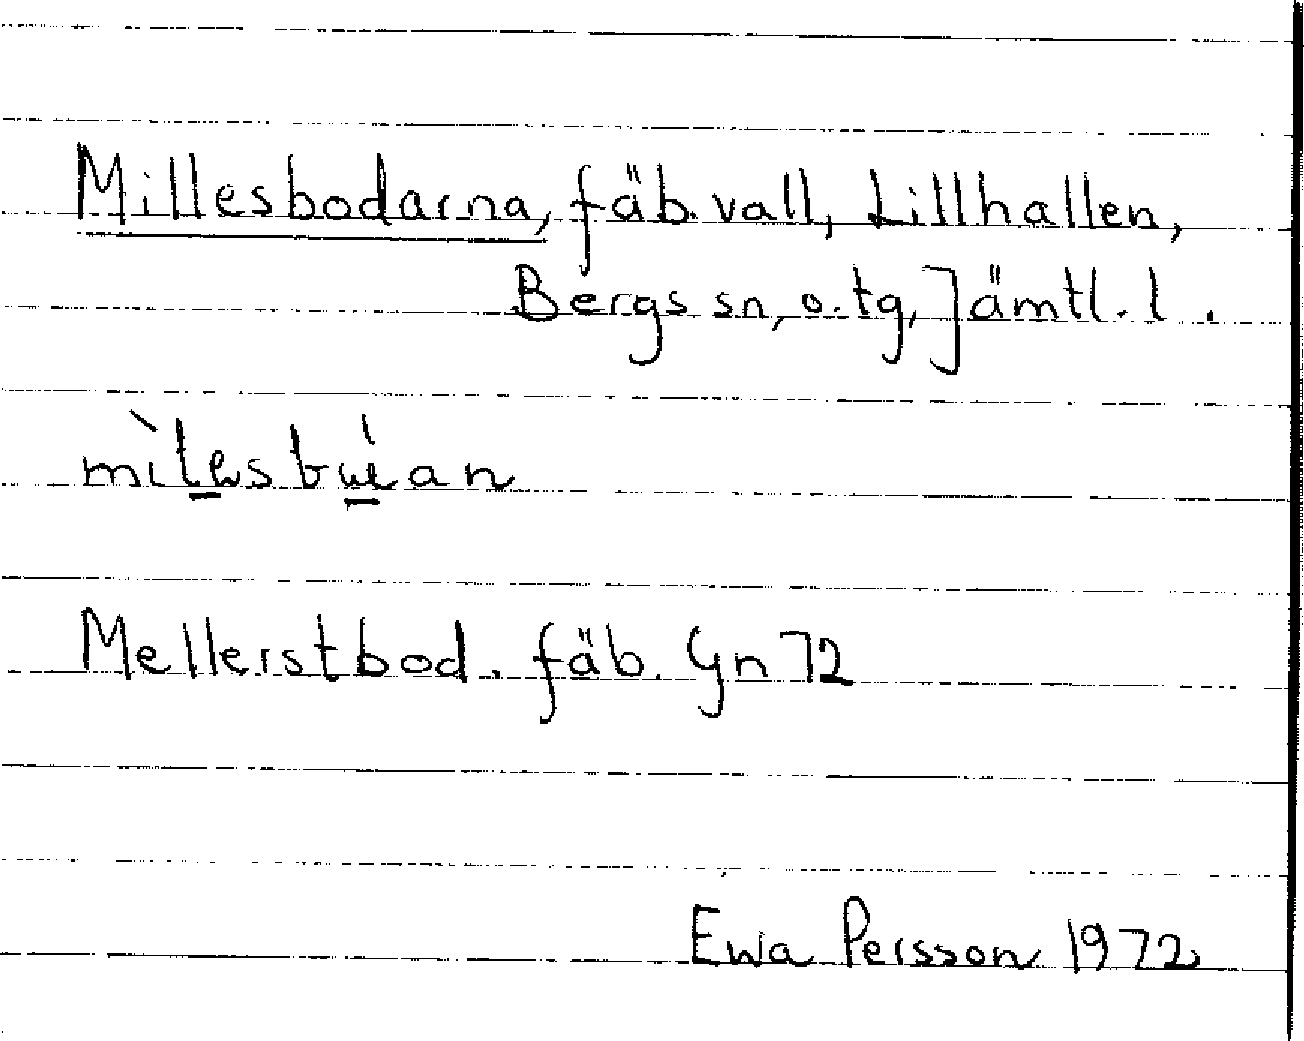 Millesbodarna, fäb. vall, Lillhallen,
Bergs sn, o. tg, Jämtl. l.
Mellerstbod. fäb. Gn 72
Ewa Persson 1972